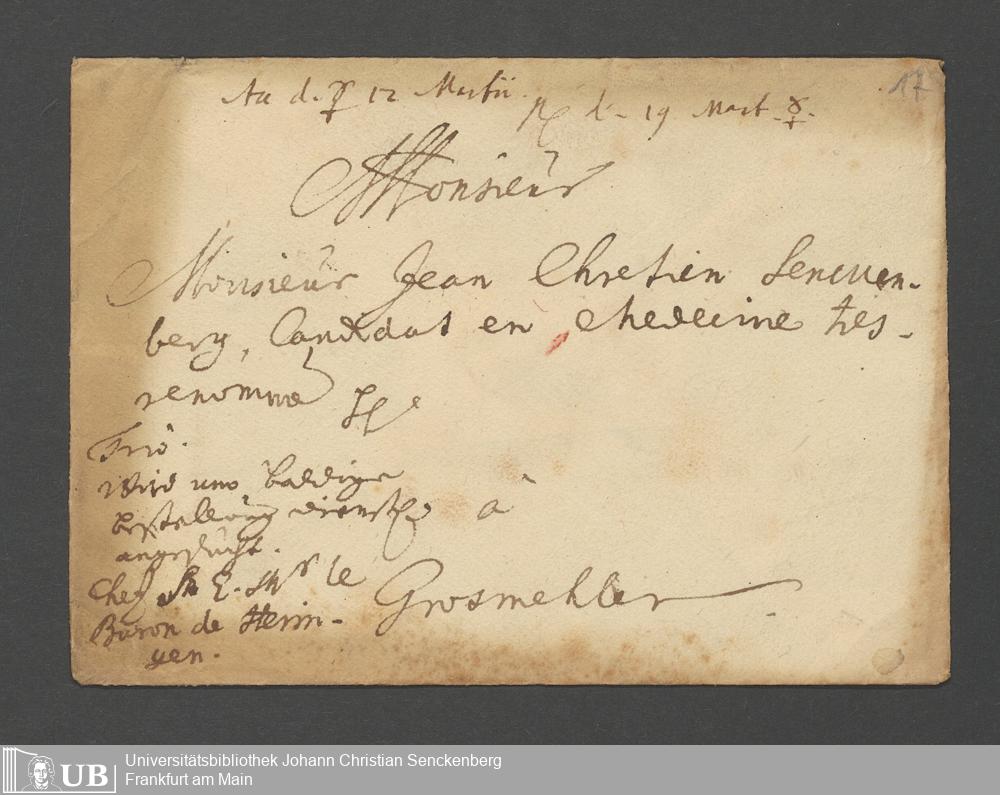 d. ☿ 12 Martii.
d. 19 Mart. ☿.
17
Monsieur
Monsieur Jean Chretien Sencken-
berg, Candidat en Medecine tres-
renommé
wird umb baldige
bestellung dienstl.
angesucht.
à
Chez S. E. Mr le
Baron de Herin-
gen.
Grosmehler
UB
Universitätsbibliothek Johann Christian Senckenberg
Frankfurt am Main